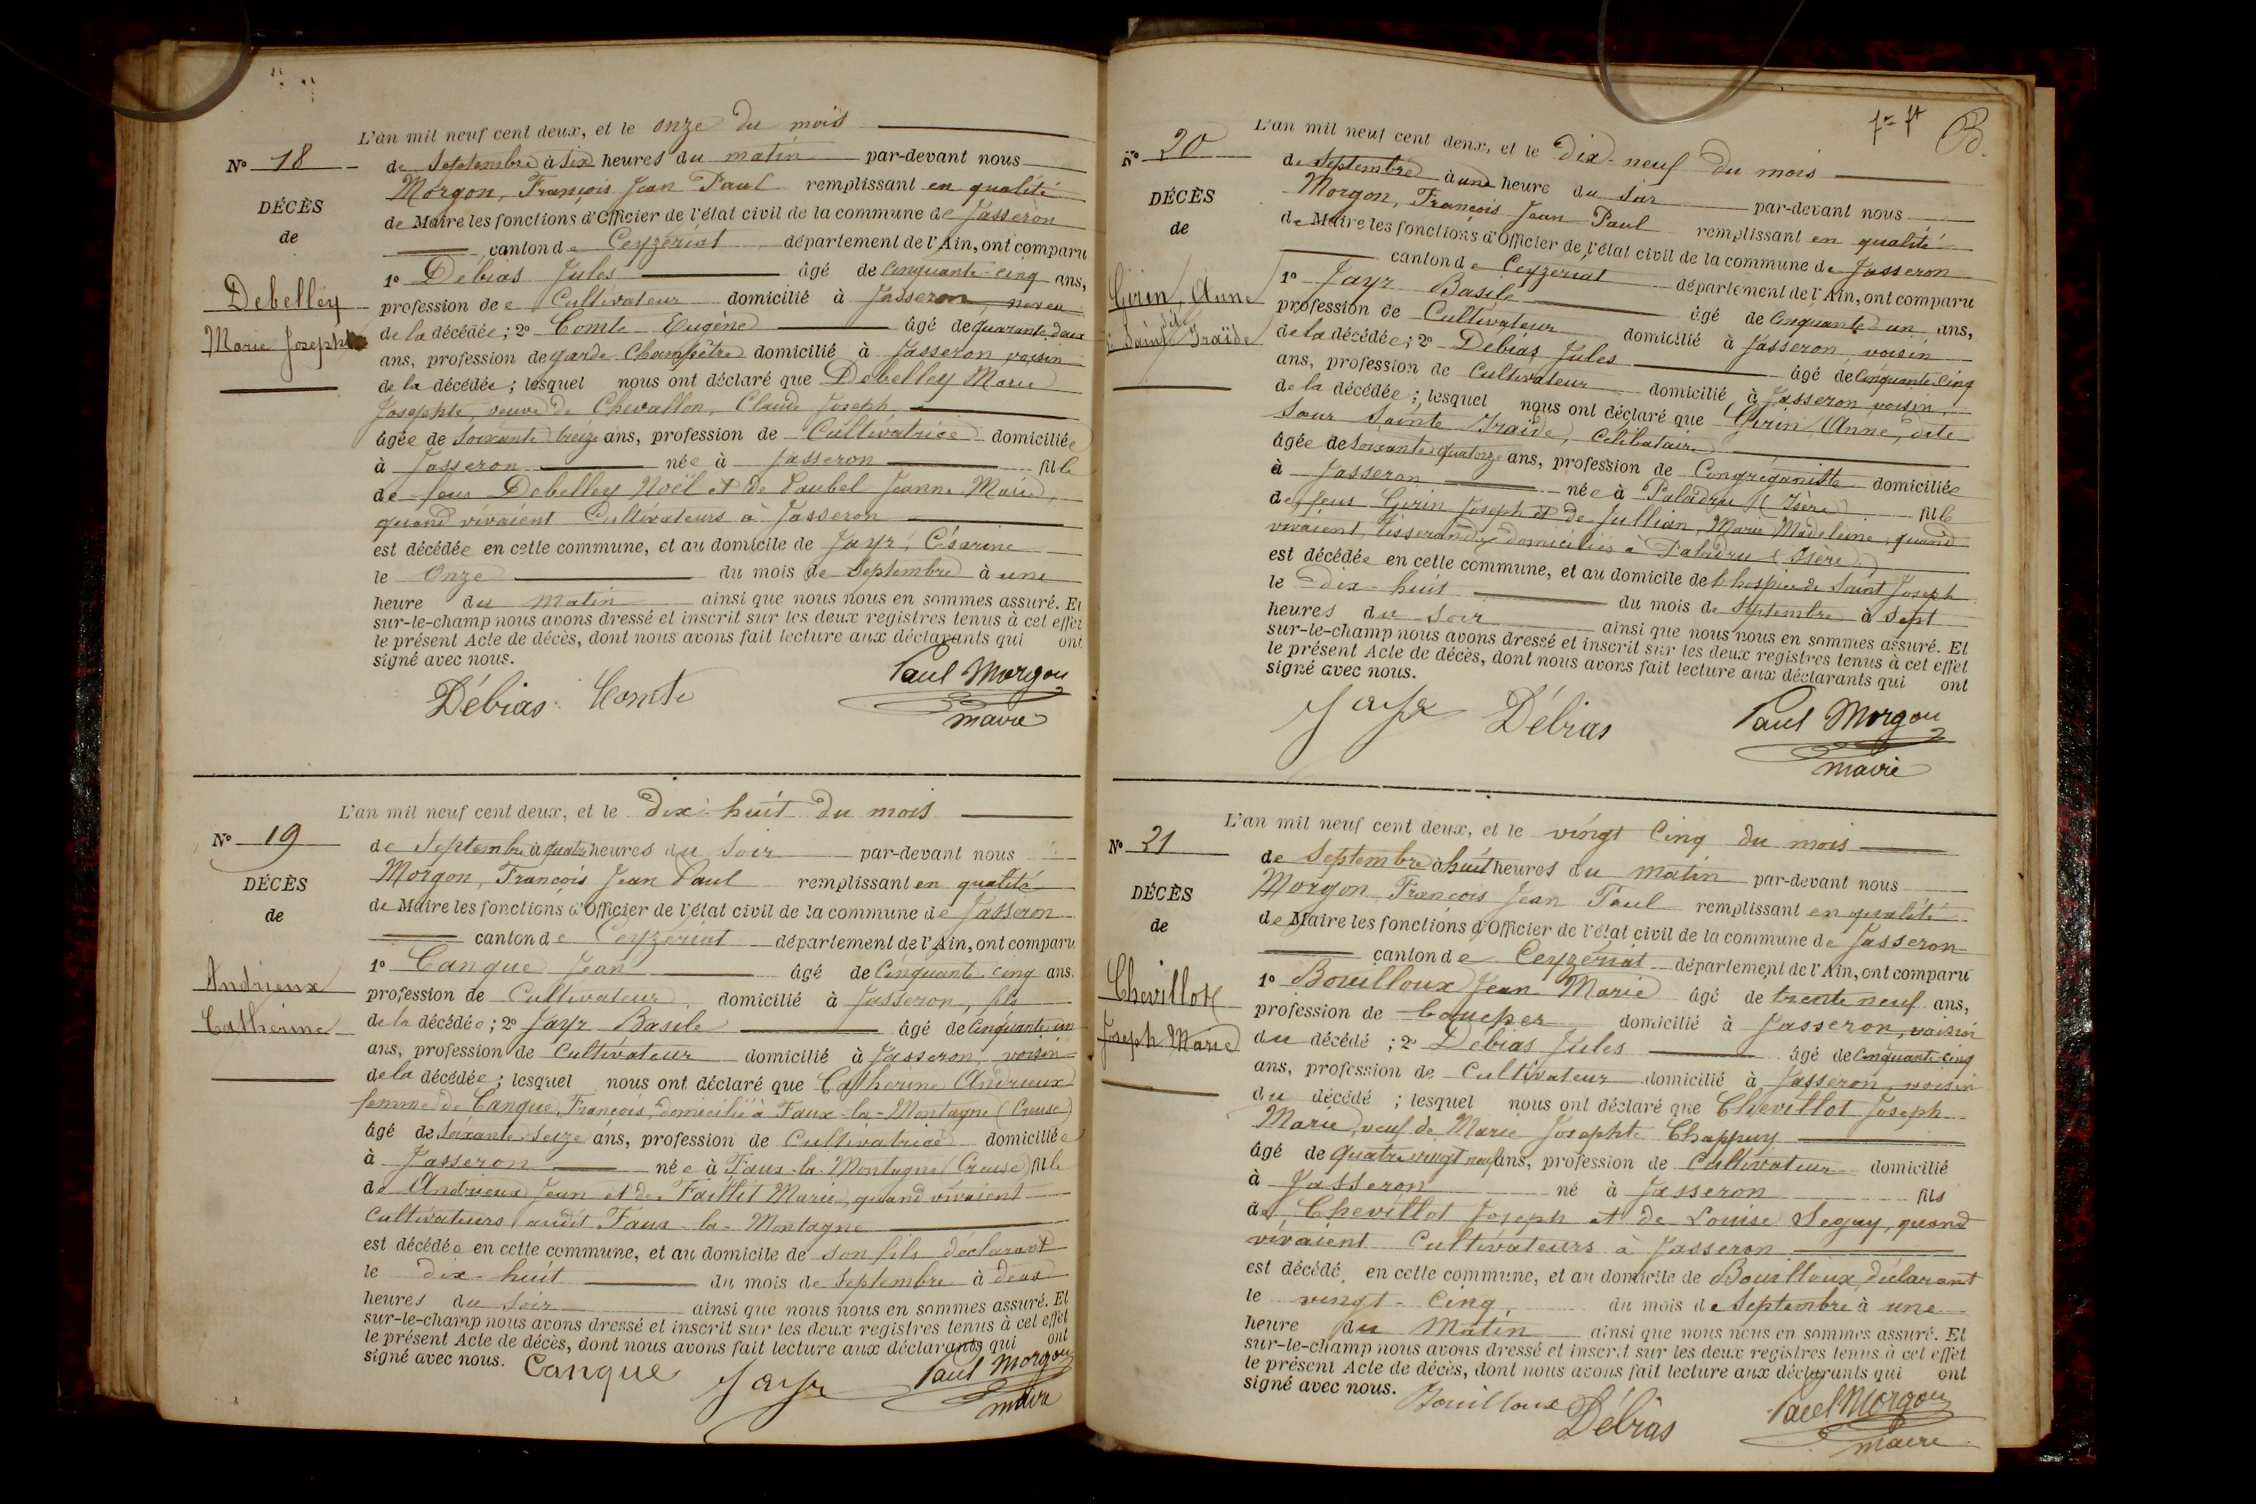 L'an mil neuf cent deux, et le onze du mois
N° 18
de Septembre à Six heures du matin par-devant nous
Morgon, François Jean Paul remplissant en qualité
DÉCÈS
de Maire les fonctions d'Officier de l'état civil de la commune de Jasseron
de
canton de Ceyzériat département de l'Ain, ont comparu
1° Débias Jules âgé de Cinquante-cinq ans,
Debelley
profession de Cultivateur domicilié à Jasseron neveu
Marie Josephte
de la décédée; 2° Comte Eugène âgé de quarante deux
ans, profession de garde Champêtre domicilié à Jasseron voisin
de la décédée; lesquel nous ont déclaré que Debelley Marie
Josephte, veuve de Chevallon, Claude Joseph,
âgée de Soixante treize ans, profession de Cultivatrice domiciliée
à Jasseron née à Jasseron fille
de feus Debelley Noël et de Paubel Jeanne Marie,
quand vivaient Cultivateurs à Jasseron
est décédée en cette commune, et au domicile de Jayr, Césarine
le Onze du mois de Septembre à une
heure du matin ainsi que nous nous en sommes assuré. Et
sur-le-champ nous avons dressé et inscrit sur les deux registres tenus à cet effet
le présent Acte de décès, dont nous avons fait lecture aux déclarants qui ont
signé avec nous.
Débias Comte Paul Morgon
maire
L'an mil neuf cent deux, et le dix-huit du mois
N° 19
de Septembre à quatre heures du Soir par-devant nous
Morgon, François Jean Paul remplissant en qualité
DÉCÈS
de Maire les fonctions d'Officier de l'état civil de la commune de Jasseron
de
canton de Ceyzériat département de l'Ain, ont comparu
1° Canque Jean âgé de Cinquante cinq ans.
Andrieux
profession de Cultivateur domicilié à Jasseron, fils
Catherine
de la décédée; 2° Jayr Basile âgé de Cinquante un
ans, profession de Cultivateur domicilié à Jasseron, voisin
de la décédée; lesquel nous ont déclaré que Catherine Andrieux
femme de Canque, François, domicilié à Faux-la-Montagne (Creuse)
âgé de Soixante Seize ans, profession de Cultivatrice domiciliée
à Jasseron née à Faux-la-Montagne (Creuse) fille
de Andrieux Jean et de Faillit Marie, quand vivaient
Cultivateurs audit Faux-la-Montagne
est décédée en cette commune, et au domicile de son fils déclarant
le dix-huit du mois de Septembre à deux
heures du Soir ainsi que nous nous en sommes assuré. Et
sur-le-champ nous avons dressé et inscrit sur les deux registres tenus à cet effet
le présent Acte de décès, dont nous avons fait lecture aux déclarants qui ont
signé avec nous.
Canque Jayr Paul Morgon
maire
B.
L'an mil neuf cent deux, et le Dix-neuf du mois
N° 20
de Septembre à une heure du Soir par-devant nous
Morgon, François Jean Paul remplissant en qualité
DÉCÈS
de Maire les fonctions d'Officier de l'état civil de la commune de Jasseron
de
canton de Ceyzériat département de l'Ain, ont comparu
1° Jayr Basile âgé de Cinquante un ans,
Girin, Anne
profession de Cultivateur domicilié à Jasseron, voisin
dite
Iraïde
de la décédée; 2° Débias Jules âgé de Cinquante Cinq
ans, profession de Cultivateur domicilié à Jasseron voisin
de la décédée; lesquel nous ont déclaré que Girin Anne, dite
Sœur Sainte Iraïde, Célibataire
âgée de Soixante quatorze ans, profession de Congréganiste domiciliée
à Jasseron née à Paladru (Isère) fille
de feus Girin Joseph et de Jullian, Marie Madeleine, quand
vivaient Tisserands domiciliés à Paladru (Isère)
est décédée en cette commune, et au domicile de l'hospice de Saint Joseph
le Dix-huit du mois de Septembre à Sept
heures du Soir ainsi que nous nous en sommes assuré. Et
sur-le-champ nous avons dressé et inscrit sur les deux registres tenus à cet effet
le présent Acte de décès, dont nous avons fait lecture aux déclarants qui ont
signé avec nous.
Jayr Débias Paul Morgon
maire
L'an mil neuf cent deux, et le vingt Cinq du mois
N° 21
de Septembre à huit heures du matin par-devant nous
Morgon François Jean Paul remplissant en qualité
DÉCÈS
de Maire les fonctions d'Officier de l'état civil de la commune de Jasseron
de
canton de Ceyzériat département de l'Ain, ont comparu
1° Bouilloux Jean Marie âgé de trente neuf ans,
Chevillot
profession de domicilié à Jasseron, voisin
Joseph Marie
du décédé; 2° Débias Jules âgé de Cinquante Cinq
ans, profession de Cultivateur domicilié à Jasseron, voisin
du décédé; lesquel nous ont déclaré que Chevillot Joseph
Marie, veuf de Marie Josephte Chappuy
âgé de quatre vingt neuf ans, profession de Cultivateur domicilié
à Jasseron né à Jasseron fils
de Chevillot Joseph et de Louise Seguy, quand
vivaient Cultivateurs à Jasseron
est décédé en cette commune, et au domicile de Bouilloux, déclarant
le vingt-Cinq, du mois de Septembre à une
heure du Matin ainsi que nous nous en sommes assuré. Et
sur-le-champ nous avons dressé et inscrit sur les deux registres tenus à cet effet
le présent Acte de décès, dont nous avons fait lecture aux déclarants qui ont
signé avec nous.
Bouilloux Débias Paul Morgon
maire